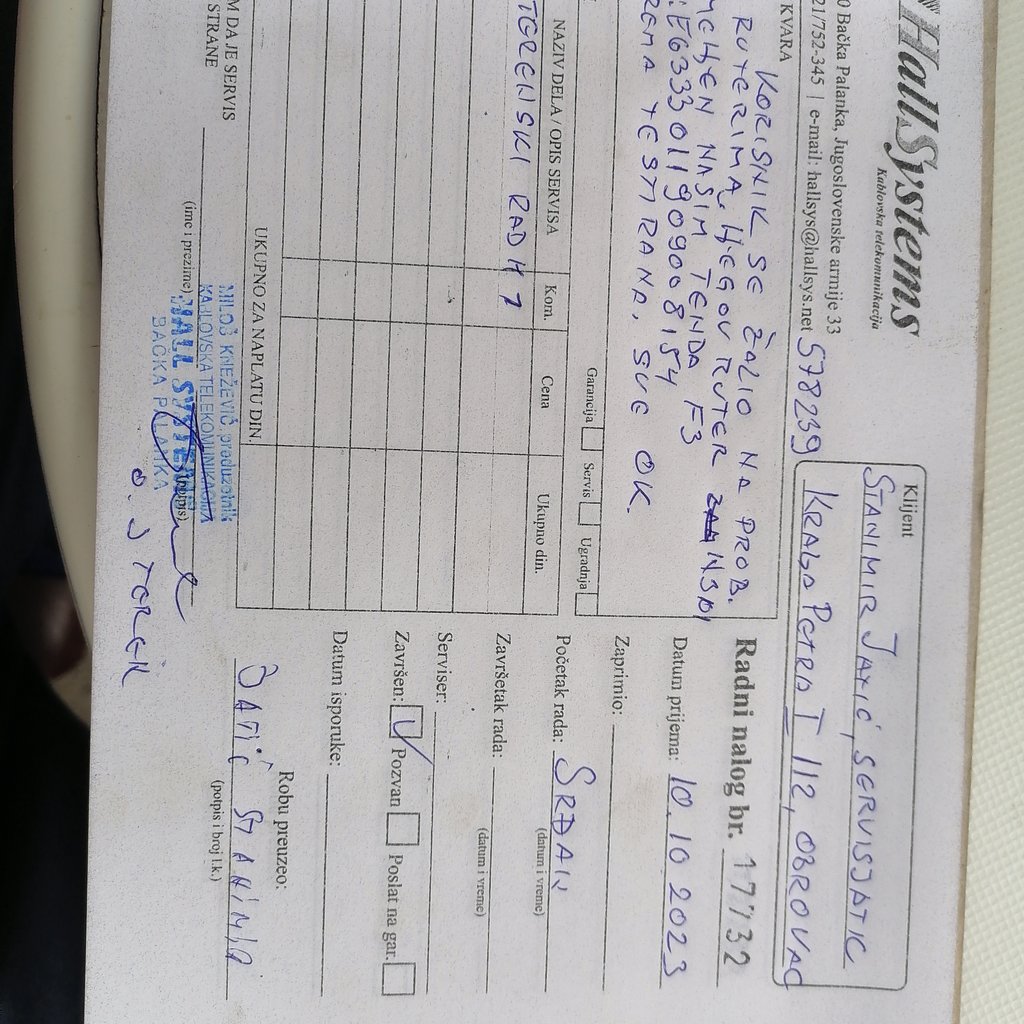 HallSystems
Kablovska telekomunikacija
0 Bačka Palanka, Jugoslovenske armije 33
21/752-345 | e-mail: hallsys@hallsys.net
578239
Klijent
STANIMIR JAKIĆ, SERVISJATIC
KRALJA PETRA I 112, OBROVAC
KVARA
KORISNIK SE ŽALIO NA PROB.
RUTERIMA. NJEGOV RUTER
NAŠIM TENDA F3
:E6333011909008154
REMA TESTIRANA, SVE OK.
Garancija
Servis
Ugradnja
Radni nalog br. 17732
Datum prijema: 10.10 2023
Zaprimio:
Početak rada: SRĐAN
(datum i vreme)
Završetak rada:
(datum i vreme)
Serviser:
Završen: Pozvan Poslat na gar.
Datum isporuke:
NAZIV DELA / OPIS SERVISA
Kom.
Cena
Ukupno din.
TERENSKI RAD H 1
UKUPNO ZA NAPLATU DIN.
M DA JE SERVIS
STRANE
(ime i prezime)
(potpis)
MILOŠ KNEŽEVIĆ, preduzetnik
KABLOVSKA TELEKOMUNIKACIJA
HALL SYSTEMS
BAČKA PALANKA
Robu preuzeo:
(potpis i broj l.k.)